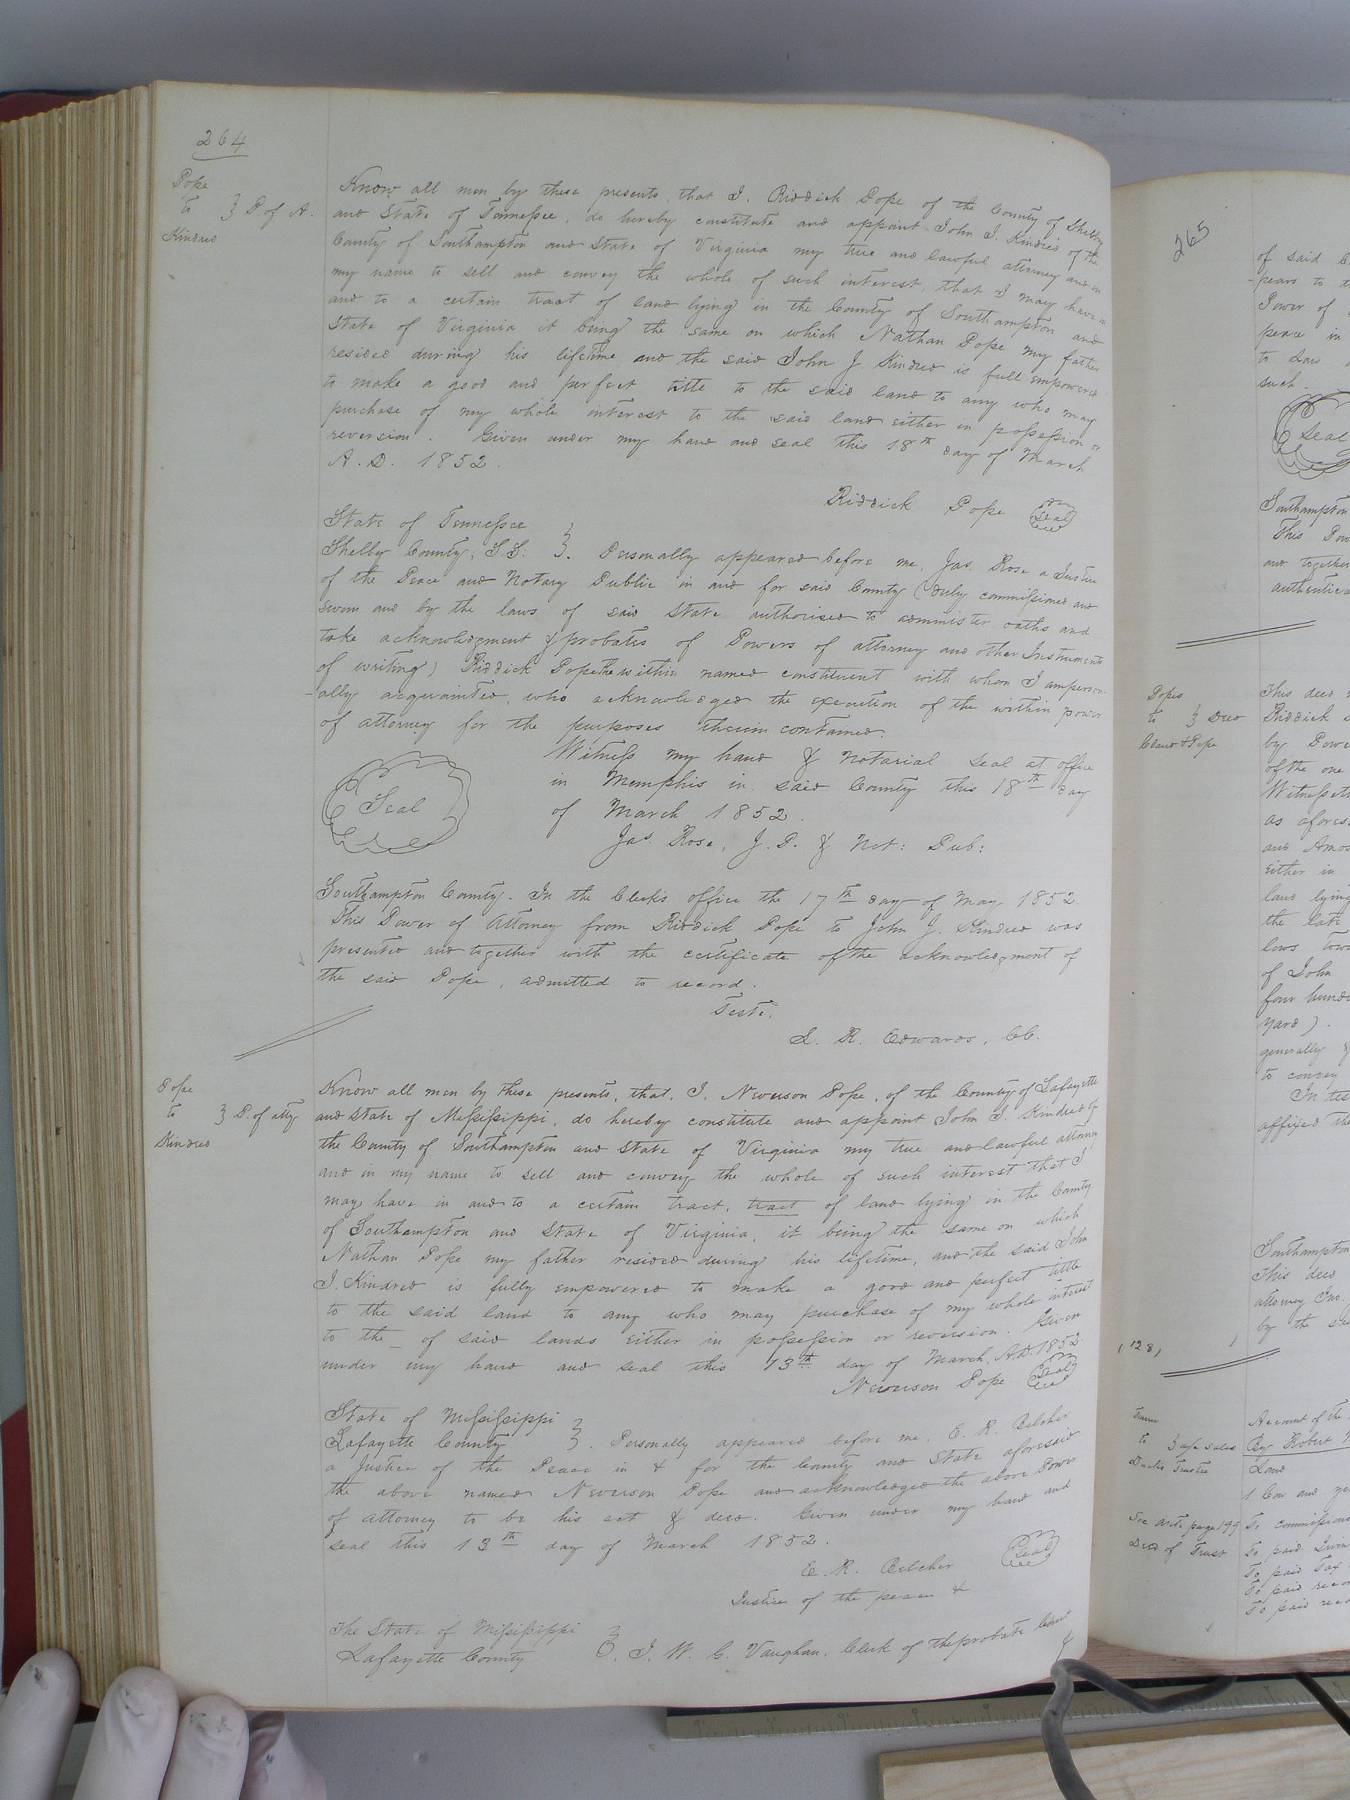 264
Pope
to } P. of A.
Kindred
Know all men by these presents, that I. Riddick Pope of the County of Shelby
and State of Tennessee, do hereby constitute and appoint John J. Kindred of the
County of Southampton and State of Virginia my true and lawful attorney and in
my name to sell and convey the whole of such interest, that I may have in
and to a certain tract of land lying in the County of Southampton and
State of Virginia it being the same on which Nathan Pope my father
resided during his lifetime and the said John J Kindred is full empowered
to make a good and perfect title to the said land to any who may
purchase of my whole interest to the said land either in possession or
reversion. Given under my hand and seal this 18th day of March
A. D. 1852.
Riddick Pope Seal
State of Tennessee
Shelby County, S S: }. Personally appeared before me, Jas Rose a Justice
of the Peace and Notary Public in and for said County (duly commissioned and
sworn and by the laws of said State authorised to administer oaths and
take acknowledgment & probates of Powers of attorney and other Instruments
of writing) Riddick Pope the within named constituent with whom I am person-
-ally acquainted, who acknowledged the execution of the within power
of attorney for the purposes therein contained.
Witness my hand & Notarial seal at office
in Memphis in said County this 18th day
of March 1852.
Seal
Jas. Rose, J. P. & Not: Pub:
Southampton County. In the Clerks office the 17th day of May 1852
This Power of Attorney from Riddick Pope to John J. Kindred was
presented and together with the certificate of the acknowledgment of
the said Pope, admitted to record.
Teste,
L. R. Edwards, CC.
Pope
to } P. of atty
Kindred
Know all men by these presents, that, I. Newsom Pope, of the County of Lafayette
and State of Mississippi, do hereby constitute and appoint John J. Kindred of
the County of Southampton and State of Virginia my true and lawful attorney
and in my name to sell and convey the whole of such interest that I
may have in and to a certain tract, tract of land lying in the County
of Southampton and State of Virginia, it being the same on which
Nathan Pope my father resided during his lifetime, and the said John
J. Kindred is fully empowered to make a good and perfect title
to the said land to any who may purchase of my whole interest
to the _ of said lands either in possession or reversion. Given
under my hand and seal this 13th day of March, A.D. 1852
Newsom Pope Seal
State of Mississippi
Lafayette County }. Personally appeared before me, E. R. Belcher
a Justice of the Peace in & for the County and State aforesaid
the above named Newsom Pope and acknowledged the above Power
of attorney to be his act & deed. Given under my hand and
seal this 13th day of March 1852.
E. R. Belcher Seal
Justice of the peace &
The State of Mississippi
Lafayette County }. I. W. C. Vaughan, Clerk of the probate Court
265
of said
pears to
Power of
peace in
to
such.
Seal
Southampton
This
and together
Popes
to } Deed
This deed
Riddick
by
of the one
as
and Amos
either in
land lying
the late
of John
four
yard).
generally
to convey
Southampton
This deed
attorney
by the
(128)
to
Account of the
By Robert
Land
1 Cow and
See ante page 199
Deed of Trust
To
To paid
To paid Tax
To paid
To paid